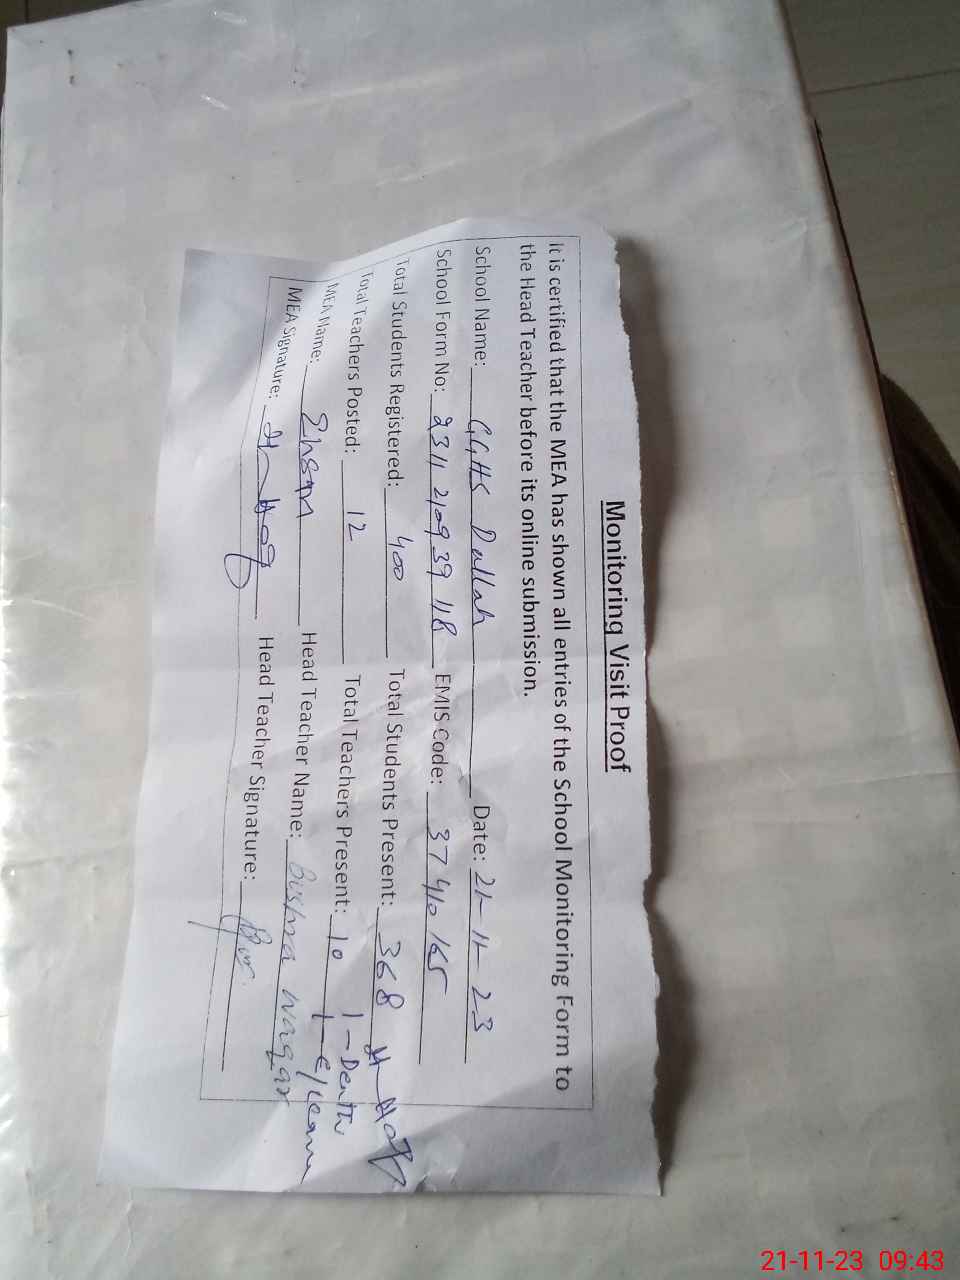 Monitoring Visit Proof
It is certified that the MEA has shown all entries of the School Monitoring Form to
the Head Teacher before its online submission.
School Name: GGHS Dullah Date: 21-11-23
School Form No: 231121093948 EMIS Code: 37410165
Total Students Registered: 400 Total Students Present: 368
Total Teachers Posted: 12 Total Teachers Present: 10 1-Death
1-E/Leave
MEA Name: Ehsan Head Teacher Name: Bushra Waqar
MEA Signature: Head Teacher Signature:
21-11-23 09:43